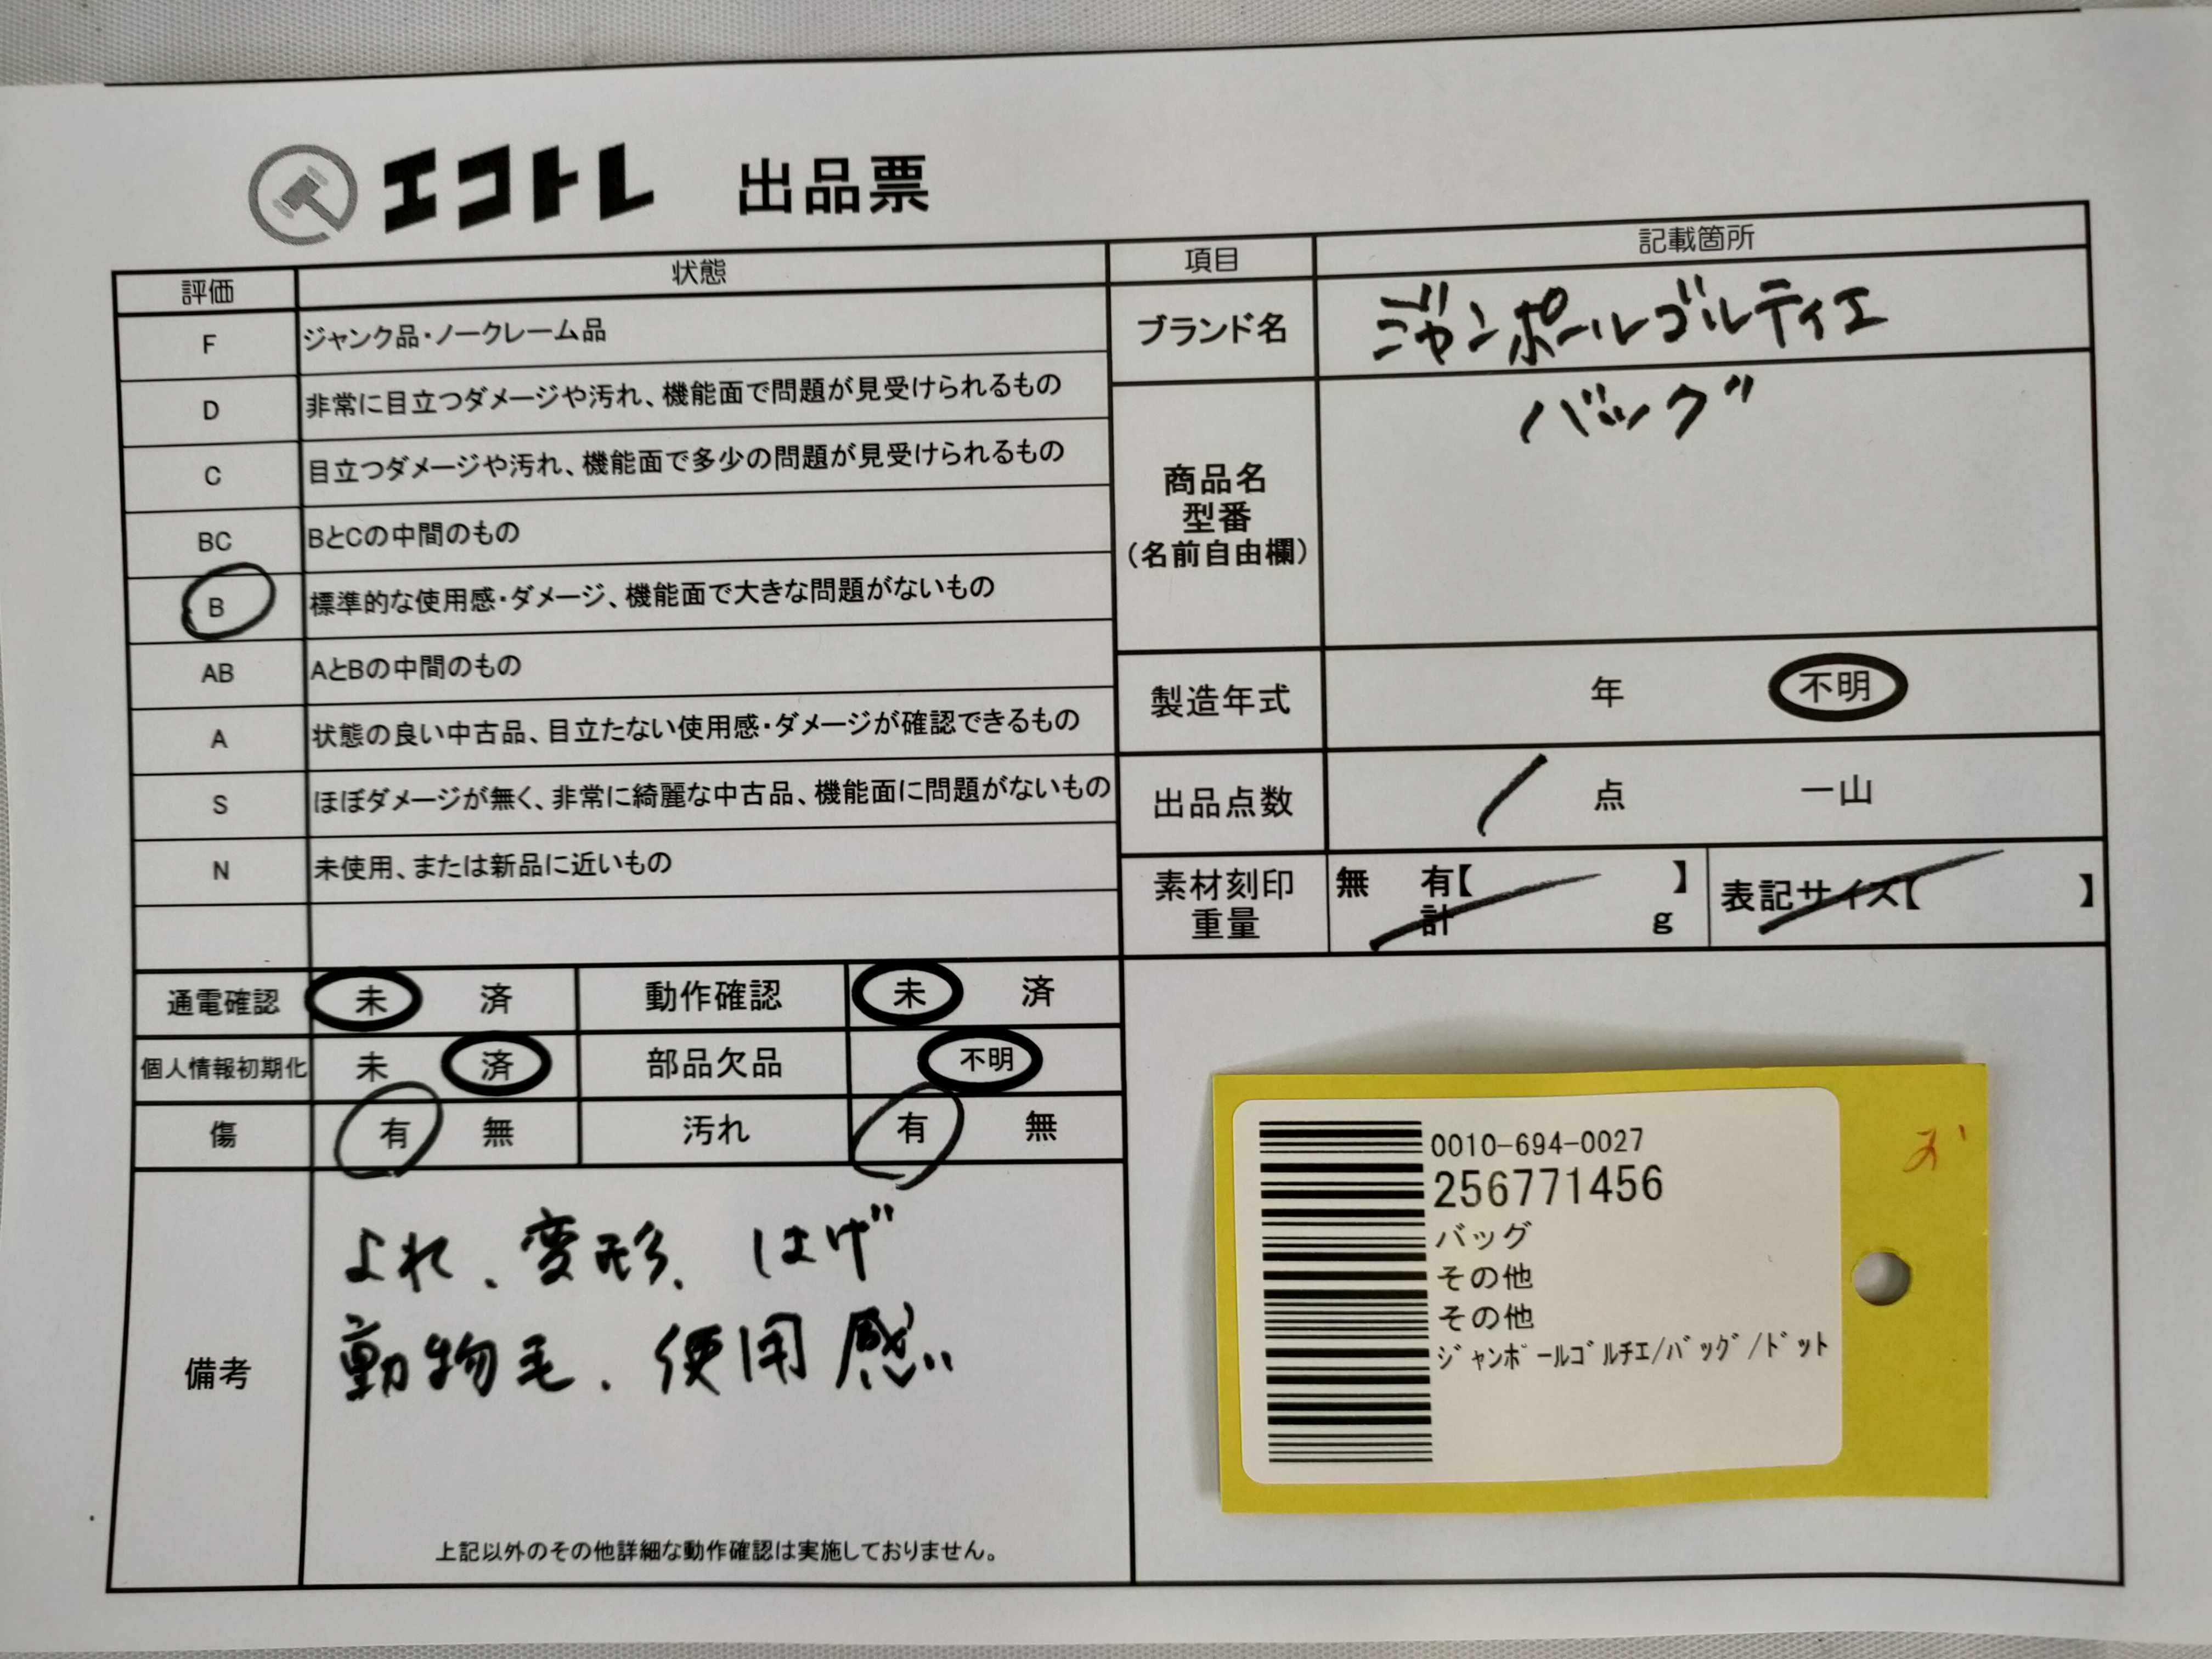 エコトレ 出品票
評価 状態
F ジャンク品・ノークレーム品
D 非常に目立つダメージや汚れ、機能面で問題が見受けられるもの
C 目立つダメージや汚れ、機能面で多少の問題が見受けられるもの
BC BとCの中間のもの
B 標準的な使用感・ダメージ、機能面で大きな問題がないもの
AB AとBの中間のもの
A 状態の良い中古品、目立たない使用感・ダメージが確認できるもの
S ほぼダメージが無く、非常に綺麗な中古品、機能面に問題がないもの
N 未使用、または新品に近いもの
通電確認 未 済 動作確認 未 済
個人情報初期化 未 済 部品欠品 不明
傷 有 無 汚れ 有 無
備考
よれ、変形、はげ
動物毛、使用感
上記以外のその他詳細な動作確認は実施しておりません。
項目 記載箇所
ブランド名 ジャンポールゴルティエ
商品名
型番
(名前自由欄)
バッグ
製造年式 年 不明
出品点数 1 点 一山
素材刻印
重量
無 有【 】
計 g
表記サイズ【 】
0010-694-0027
256771456
バッグ
その他
その他
ｼﾞｬﾝﾎﾟｰﾙｺﾞﾙﾁｴ/ﾊﾞｯｸﾞ/ﾄﾞｯﾄ